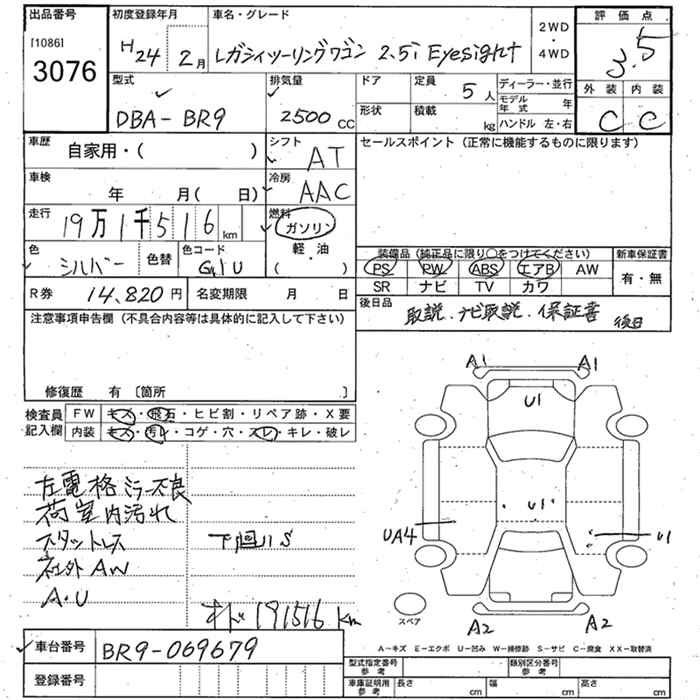 出品番号 初度登録年月 車名・グレード 2WD・4WD 評価点
[1086] 3076 H24年2月 レガシィツーリングワゴン 2.5i Eyesight 3.5
外装 内装
C C
型式 排気量 ドア 定員 5人 ディーラー・並行
DBA-BR9 2500cc 形状 積載 kg モデル年式 年
ハンドル 左・右
車歴 自家用・( ) シフト AT セールスポイント(正常に機能するものに限ります)
車検 年 月( 日) 冷房 AAC
走行 19万1千516km 燃料 ガソリン
軽・油
( )
色 シルバー 色替 色コード G1U
装備品(純正品に限り○をつけてください) 新車保証書
PS PW ABS エアB AW 有・無
SR ナビ TV カワ
R券 14,820円 名変期限 月 日
後日品 取説、ナビ取説、保証書 後日
注意事項申告欄(不具合内容等は具体的に記入して下さい)
修復歴 有〔箇所 〕
検査員記入欄 FW キズ・飛石・ヒビ割・リペア跡・X要
内装 キズ・汚レ・コゲ・穴・スレ・キレ・破レ
左電格ミラー不良
荷室内汚れ
スタットレス 下廻りS
社外AW
A・U
191516km
A1 A1
U1
U1
UA4 U1
スペア
A2 A2
A-キズ E-エクボ U-凹み W-補修跡 S-サビ C-腐食 XX-取替済
車台番号 BR9-069679
登録番号
型式指定番号 参考 類別区分番号 参考
車庫証明用 参考 長さ cm 幅 cm 高さ cm